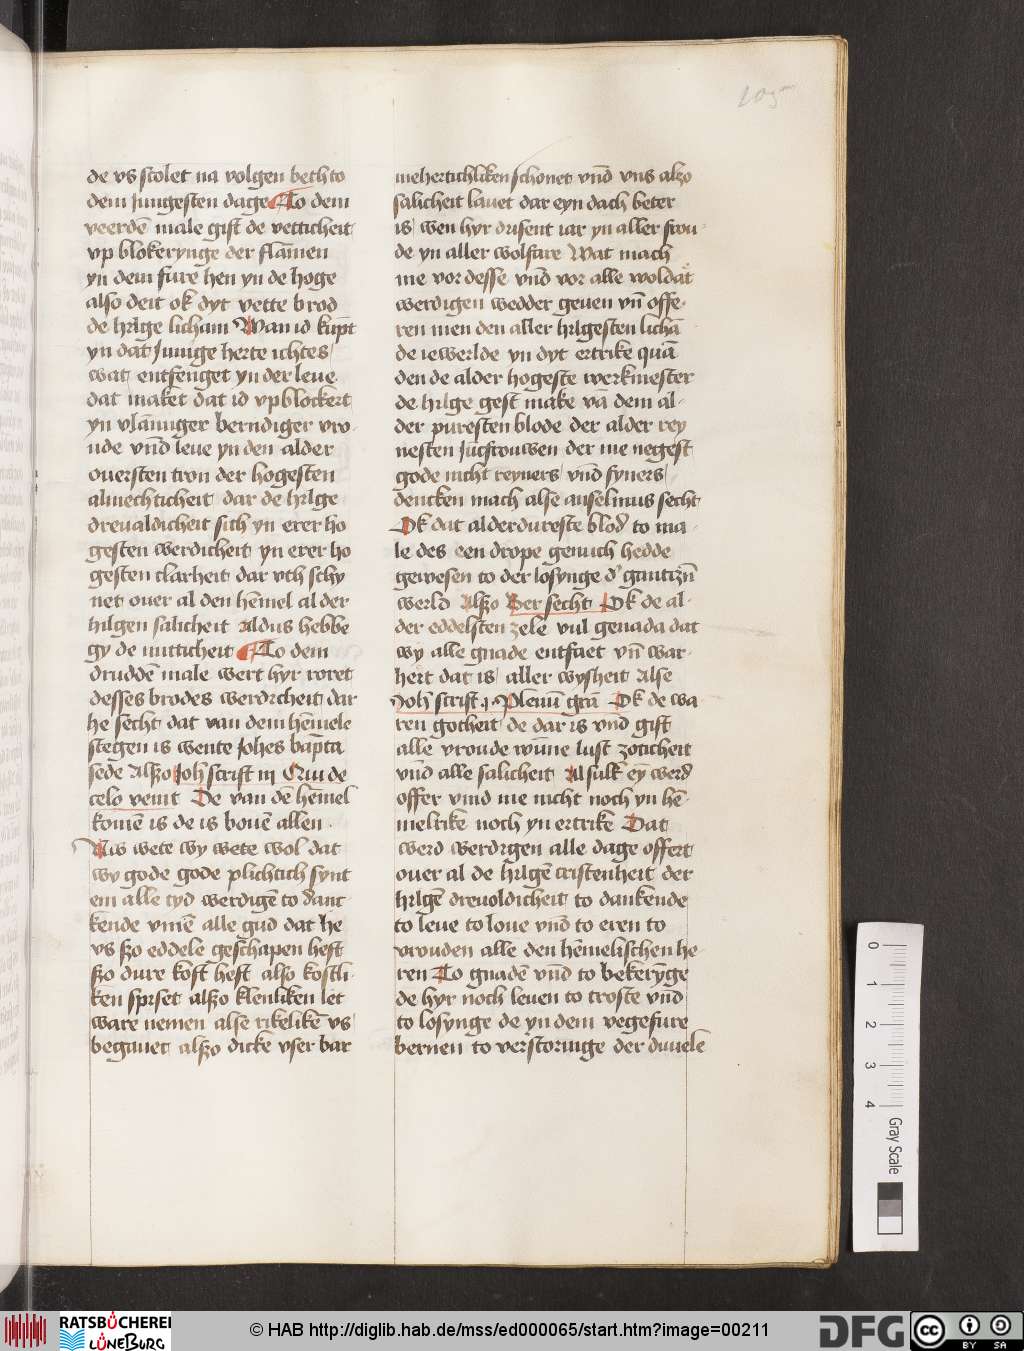 105
de vs stolet na volgen beth to
dem jungesten dage To dem
veerdē male gift de vetticheit
vp blokerynge der flāmen
yn dem fure hen yn de hoge
also deit ok dyt vette brod
de hilge licham Wan id kūpt
yn dat junige herte ichtes
wat entfenget yn der leue
dat maket dat id vpblockert
yn vlāniger berndiger vro
ude vnd leue yn den alder
ouersten tron der hogesten
almechticheit dar de hilge
dreualdicheit sich yn erer ho
gesten werdicheit yn erer ho
gesten clarheit dar vth schy
net ouer al den hēmel al der
hilgen salicheit Aldus hebbe
gy de nutticheit To dem
druddē male wert hyr roret
desses brodes werdicheit dar
he secht dat van dem hēmele
stegen is wente Johēs baptā
sede Alszo Joh̄ scrift iij Qui de
celo venit De van dē hēmel
komē is de is bouē allen
Nw wete wy wete wol dat
wy gode gode plichtich synt
em alle tyd werdigē to danc
kende vmē alle gud dat he
vs szo eddele geschapen heft
szo dure koft heft also kostli
ken spiset alszo klenliken let
ware nemen alse rikelikē vs
begauet alszo dicke vser bar
mehertichliken schonet vnd vns alzo
salicheit lauet dar eyn dach beter
is wen hyr dusent iar yn aller frou
de yn aller wolfare Wat mach
me vor desse vnd vor alle woldat
werdigen wedder geuen vn̄ offe
ren men den aller hilgesten lichā
de iewerlde yn dyt ertrike quā
den de alder hogeste werkmester
de hilge gest make va dem al
der puresten blode der alder rey
nesten jūcfrouwen der me negest
gode nicht reyners vnd fyners
dencken mach alse anselmus secht
Ok dat alderdureste blod to ma
le des een drope genuch hedde
gewesen to der losynge d' gantzn̄
werld Alszo Ber secht Ok de al
der eddelsten zele vul genada dat
wy alle gnade entfaet vn̄ war
hert dat is aller wysheit Alse
Joh̄ scrift .j. Plenū grā Ok de wa
ren gotheit de dar is vnd gift
alle vroude wūne lust zoticheit
vnd alle salicheit Al sulk eȳ werd
offer vind me nicht noch yn hē
melrike noch yn ertrike Dat
werd werdigen alle dage offert
ouer al de hilgē cristenheit der
hilgē dreuoldicheit to dankende
to leue to loue vnd to eren to
vrouden alle den hēmelischen he
ren To gnadē vnd to bekerȳge
de hyr noch leuen to troste vnd
to losynge de yn dem vegefure
bernen to verstoringe der duuele
0
1
2
3
4
Gray Scale
RATSBÜCHEREI
LÜNEBURG
© HAB http://diglib.hab.de/mss/ed000065/start.htm?image=00211
DFG
cc
BY SA